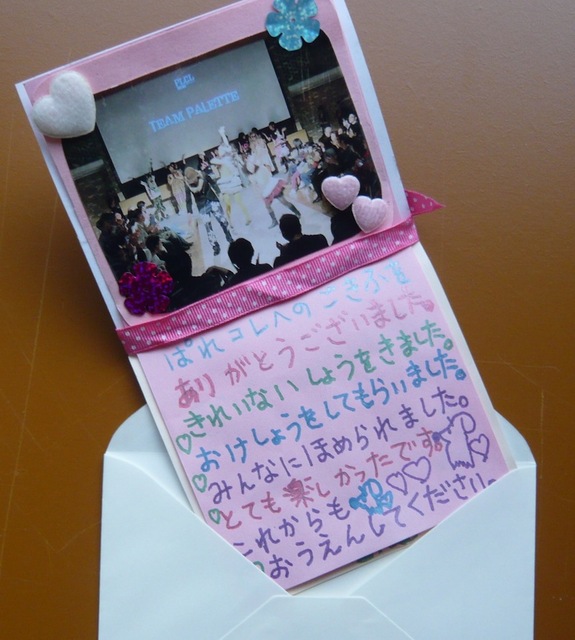 TEAM PALETTE
ぱれコレへのごきふを
ありがとうございました。
きれいないしょうをきました。
おけしょうをしてもらいました。
みんなにほめられました。
とても楽しかったです。
これからも
おうえんしてください。